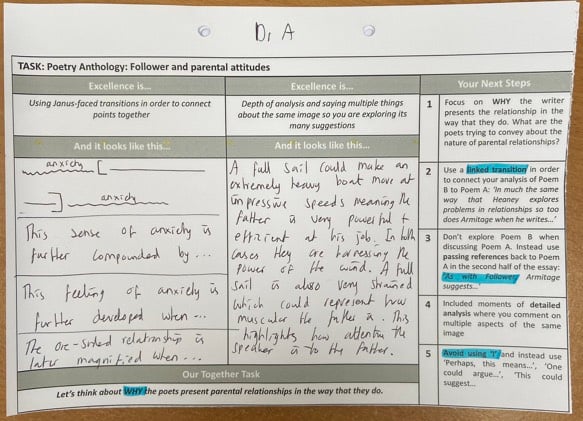 Dr A
TASK: Poetry Anthology: Follower and parental attitudes
Excellence is...
Using Janus-faced transitions in order to connect
points together
And it looks like this...
anxiety
anxiety
This sense of anxiety is
further compounded by ...
This feeling of anxiety is
further developed when ...
The one-sided relationship is
later magnified when ...
Excellence is...
Depth of analysis and saying multiple things
about the same image so you are exploring its
many suggestions
And it looks like this...
A full sail could make an
extremely heavy boat move at
impressive speeds meaning the
father is very powerful +
efficient at his job. In both
cases they are harnessing the
power of the wind. A full
sail is also very strained
which could represent how
muscular the father is. This
highlights how attentive the
speaker is to the father.
Your Next Steps
1 Focus on WHY the writer
presents the relationship in the
way that they do. What are the
poets trying to convey about the
nature of parental relationships?
2 Use a linked transition in order
to connect your analysis of Poem
B to Poem A: 'In much the same
way that Heaney explores
problems in relationships so too
does Armitage when he writes...'
3 Don't explore Poem B when
discussing Poem A. Instead use
passing references back to Poem
A in the second half of the essay:
'As with Follower, Armitage
suggests...'
4 Included moments of detailed
analysis where you comment on
multiple aspects of the same
image
5 Avoid using 'I' and instead use
'Perhaps, this means...', 'One
could argue...', 'This could
suggest...
Our Together Task
Let's think about WHY the poets present parental relationships in the way that they do.